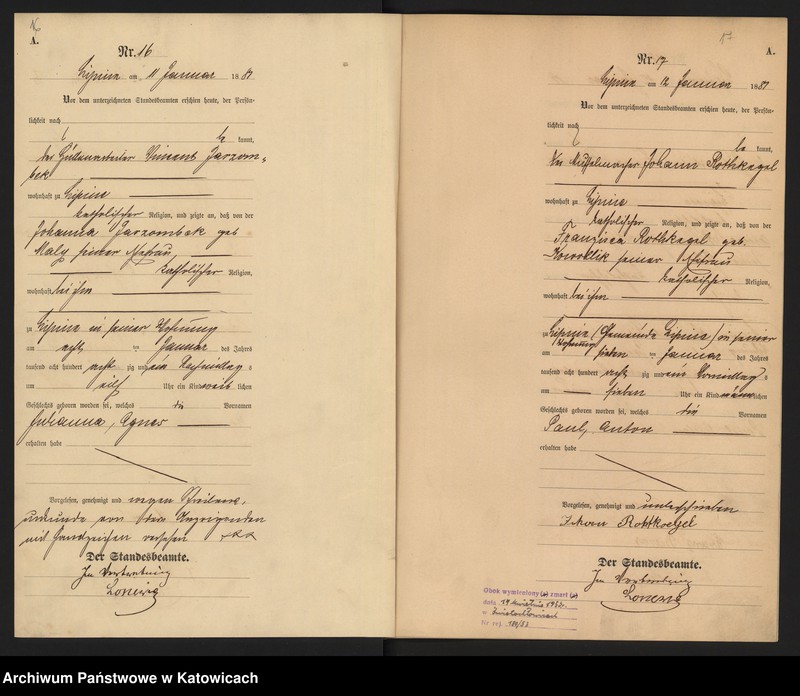 A.
Nr. 16
Lipine am 11 Januar 1881
Vor dem unterzeichneten Standesbeamten erschien heute, der Persön-
lichkeit nach
kannt,
der Hüttenarbeiter Vincent Jarzom-
bek
wohnhaft zu Lipine
katholischer Religion, und zeigte an, daß von der
Johanna Jarzombek geb
Maly seiner Ehefrau,
katholischer Religion,
wohnhaft bei ihm
zu Lipine in seiner Wohnung
am acht ten Januar des Jahres
tausend acht hundert acht zig und ein Nachmittag s
um eilf Uhr ein Kind weib lichen
Geschlechts geboren worden sei, welches die Vornamen
Julianna, Agnes
erhalten habe
Vorgelesen, genehmigt und wegen Schreibens,
unkunde von dem Anzeigenden
mit Handzeichen versehen xxx
Der Standesbeamte.
In Vertretung
17
A.
Nr. 17
Lipine am 12 Januar 1881
Vor dem unterzeichneten Standesbeamten erschien heute, der Persön-
lichkeit nach
be kannt,
der Johann Rothkegel
wohnhaft zu Lipine
katholischer Religion, und zeigte an, daß von der
Franzisca Rothkegel geb.
seiner Ehefrau
katholischer Religion,
wohnhaft bei ihm
zu Lipine (Gemeinde Lipine) in seiner
Wohnung
am sieben ten Januar des Jahres
tausend acht hundert acht zig und ein Vormittag s
um sieben Uhr ein Kind männ lichen
Geschlechts geboren worden sei, welches die Vornamen
Paul, Anton
erhalten habe
Vorgelesen, genehmigt und unterschrieben
Johann Rothkegel
Der Standesbeamte.
In Vertretung
Obok wymieniony(a) zmarł(a)
dnia
w Świętochłowicach
Nr rej.
Archiwum Państwowe w Katowicach